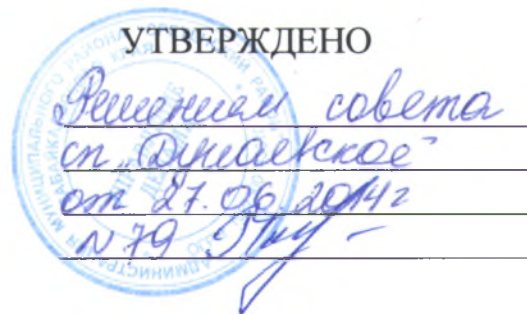 УТВЕРЖДЕНО
Решением совета
сп „Дунаевское"
от 27.06.2014г
N 79